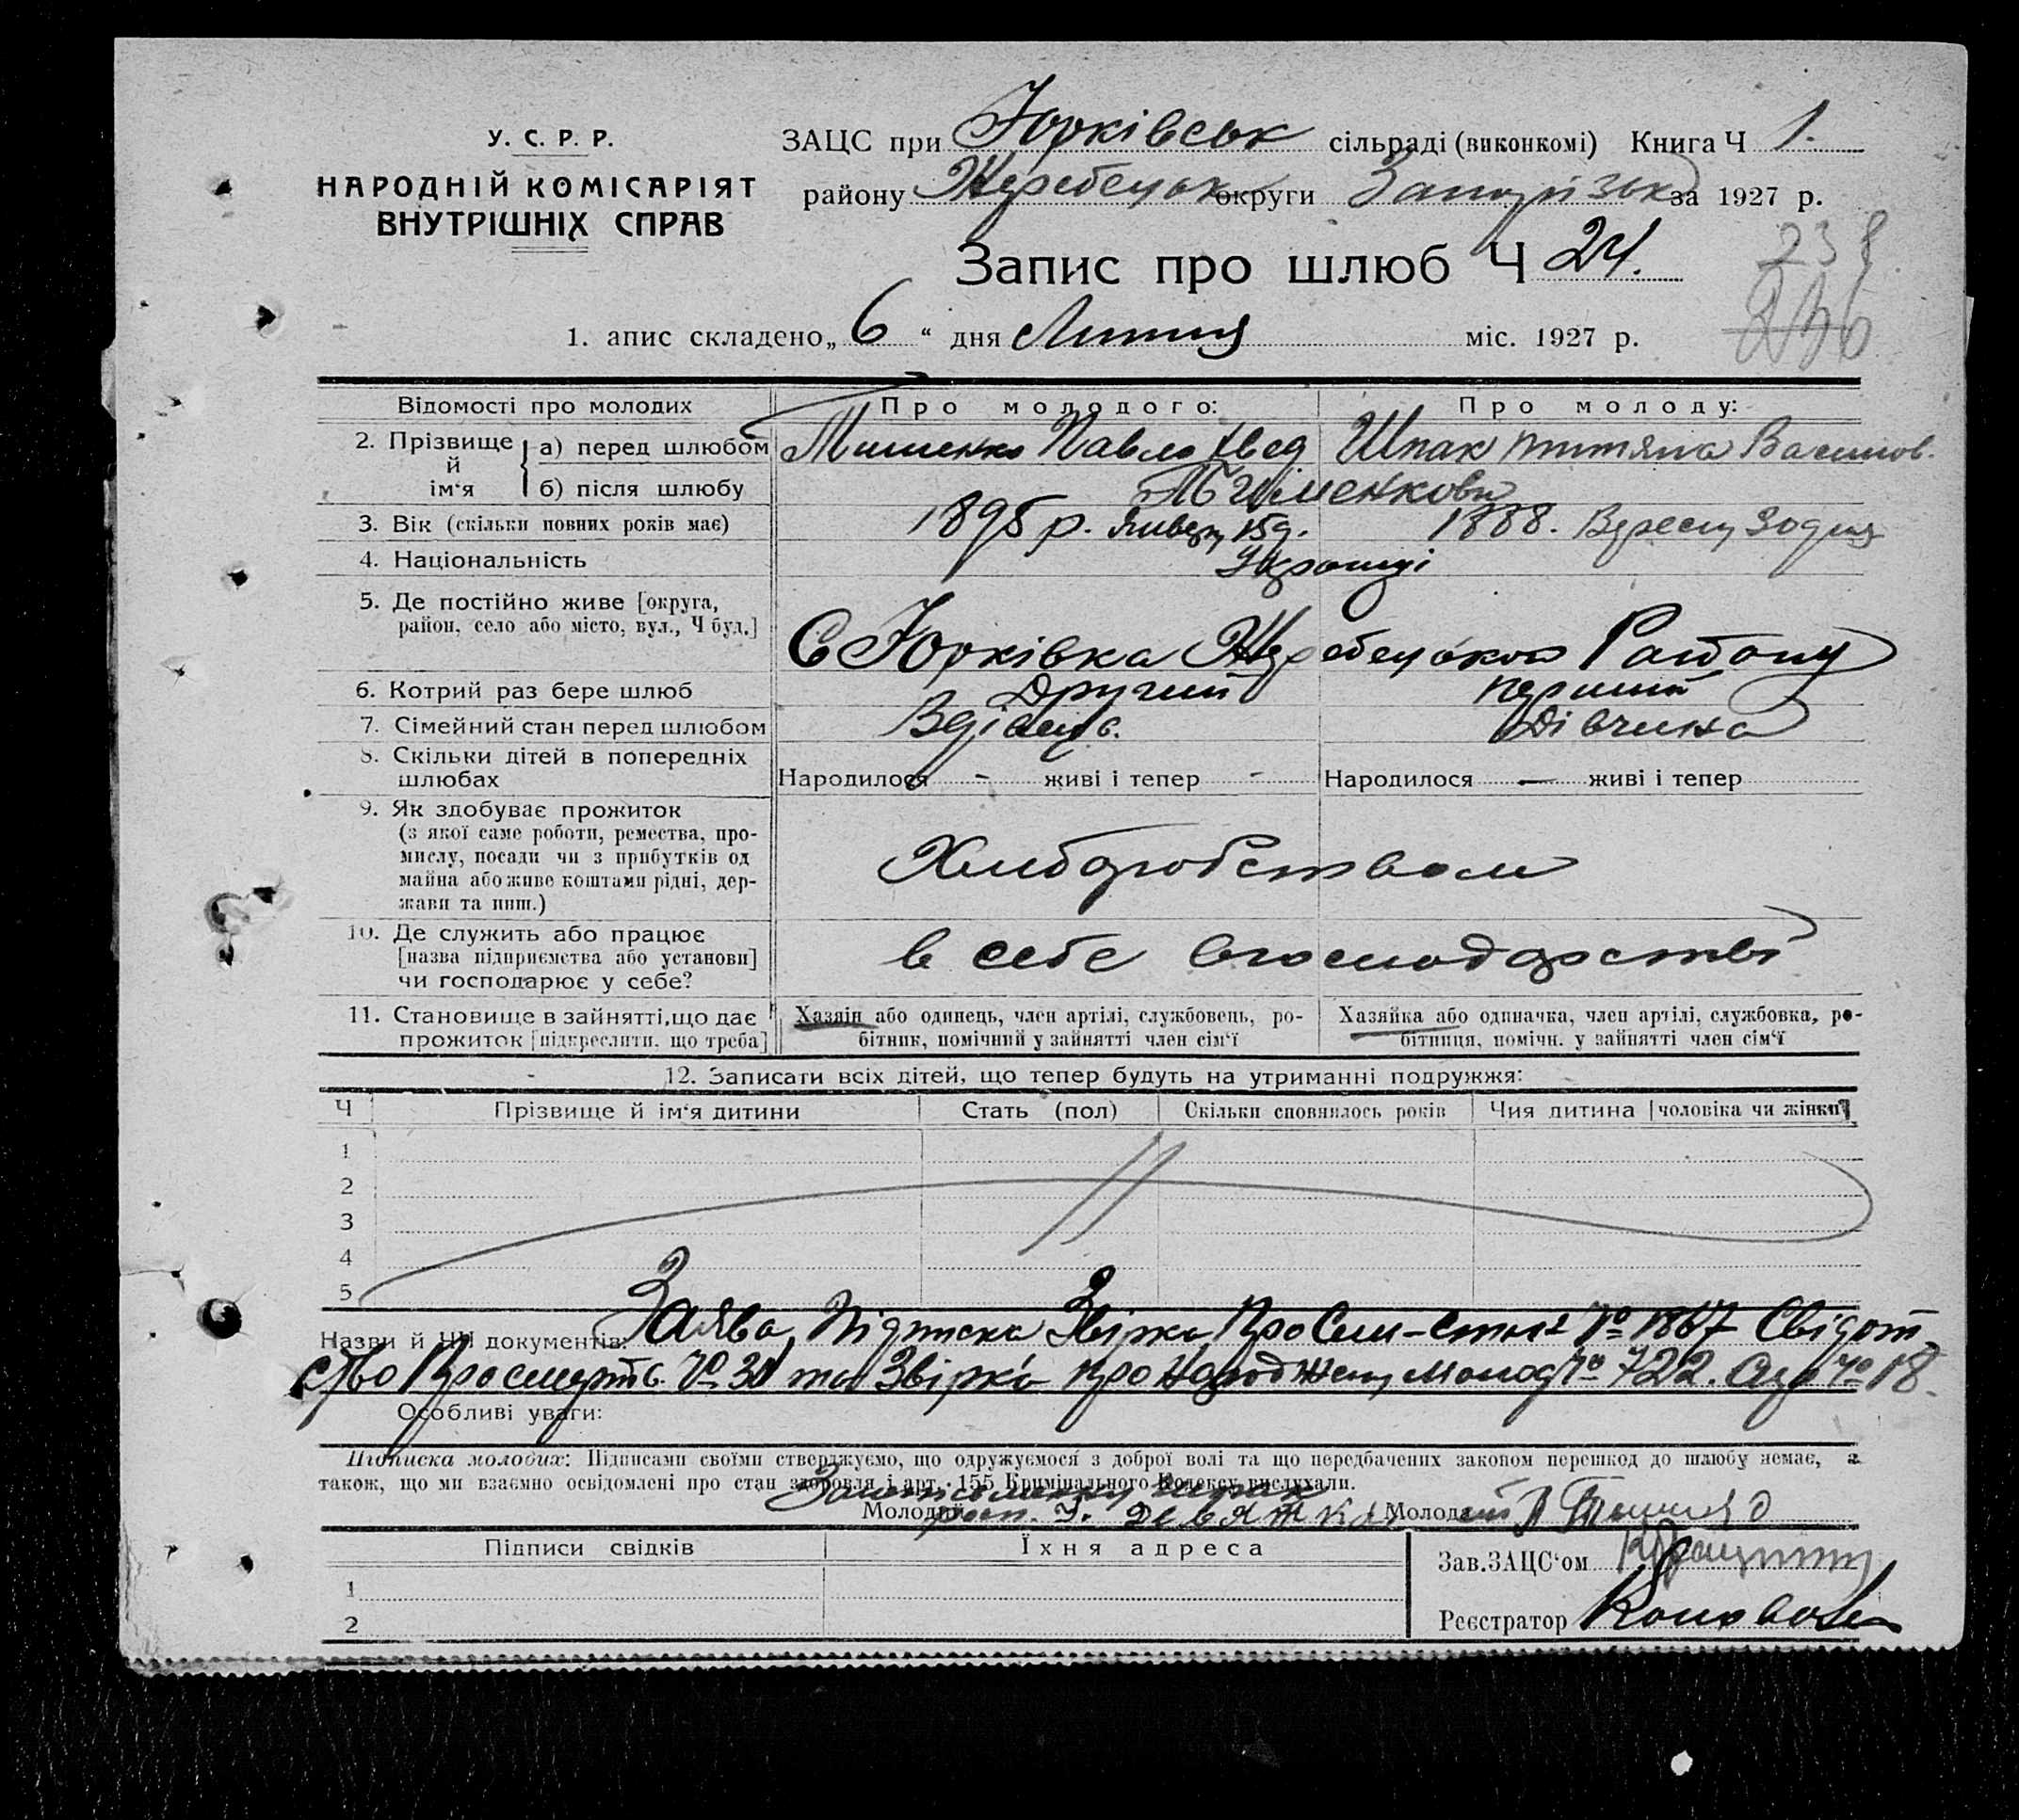 У. С. Р. Р.
НАРОДНІЙ КОМІСАРІЯТ
ВНУТРІШНІХ СПРАВ
ЗАЦС при Юрківськ сільраді (виконкомі) Книга Ч 1.
району Жеребецьк округи Запорізьк за 1927 р.
Запис про шлюб Ч 24.
238
1. апис складено „ 6 “ дня Липня міс. 1927 р.
Відомості про молодих Про молодого: Про молоду:
2. Прізвище й ім‘я а) перед шлюбом Павло Шпак
б) після шлюбу
3. Вік (скільки повних років має) 1895 р. 15 д. 1888. Вересня 30 дня
4. Національність Українці
5. Де постійно живе [округа,
район, село або місто, вул., Ч буд.]
С Юрківка Жеребецького Району
6. Котрий раз бере шлюб Другий перший
7. Сімейний стан перед шлюбом Вдівець. Дівчина
8. Скільки дітей в попередніх
шлюбах Народилося - живі і тепер - Народилося — живі і тепер
9. Як здобуває прожиток
(з якої саме роботи, ремества, про-
мислу, посади чи з прибутків од
майна або живе коштами рідні, дер-
жави та инш.)
Хліборобством
10. Де служить або працює
[назва підприємства або установи]
чи господарює у себе?
в себе вгосподарстві
11. Становище в зайнятті, що дає
прожиток [підкреслити, що треба]
Хазяїн або одинець, член артілі, службовець, ро-
бітник, помічний у зайнятті член сім‘ї
Хазяйка або одиначка, член артілі, службовка, ро-
бітниця, помічн. у зайнятті член сім‘ї
12. Записати всіх дітей, що тепер будуть на утриманні подружжя:
Ч Прізвище й ім‘я дитини Стать (пол) Скільки сповнилось років Чия дитина [чоловіка чи жінки]
1
2
3
4
5
Назви й ЧЧ документів: Заява, Підписка Звірка Про № 1867 Свідот-
ство Про смерть № 31 та Звірка про народженя Молод № 722. № 18.
Особливі уваги:
Підписка молодих: Підписами своїми стверджуємо, що одружуємося з доброї волі та що передбачених законом перешкод до шлюбу немає, а
також, що ми взаємно освідомлені про стан здоровля і арт. 155 Кримінального Кодексу вислухали.
Молодий Молода
Підписи свідків Їхня адреса
1
2
Зав. ЗАЦС‘ом
Реєстратор